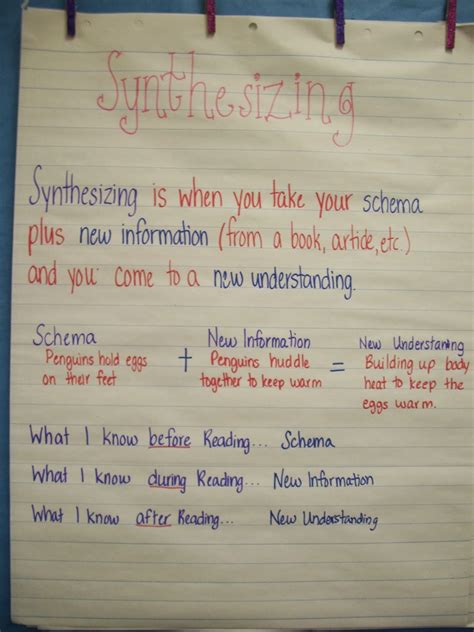 Synthesizing
Synthesizing is when you take your schema
plus new information (from a book, article, etc.)
and you come to a new understanding.
Schema + New Information = New Understanding
Penguins hold eggs Penguins huddle Building up body
on their feet together to keep warm heat to keep the
eggs warm.
What I know before Reading... Schema
What I know during Reading... New Information
What I know after Reading... New Understanding